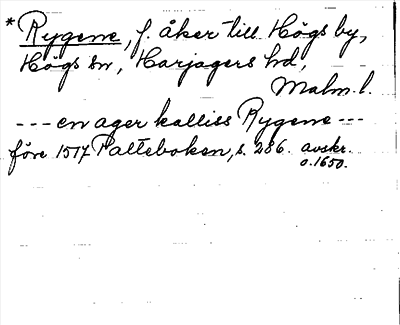 * Rygene, f. åker till Högs by,
Högs sn, Harjagers hd,
Malm. l.
--- en ager kalliss Rygene ---
före 1517 Palteboken, s. 286. avskr.
o. 1650.